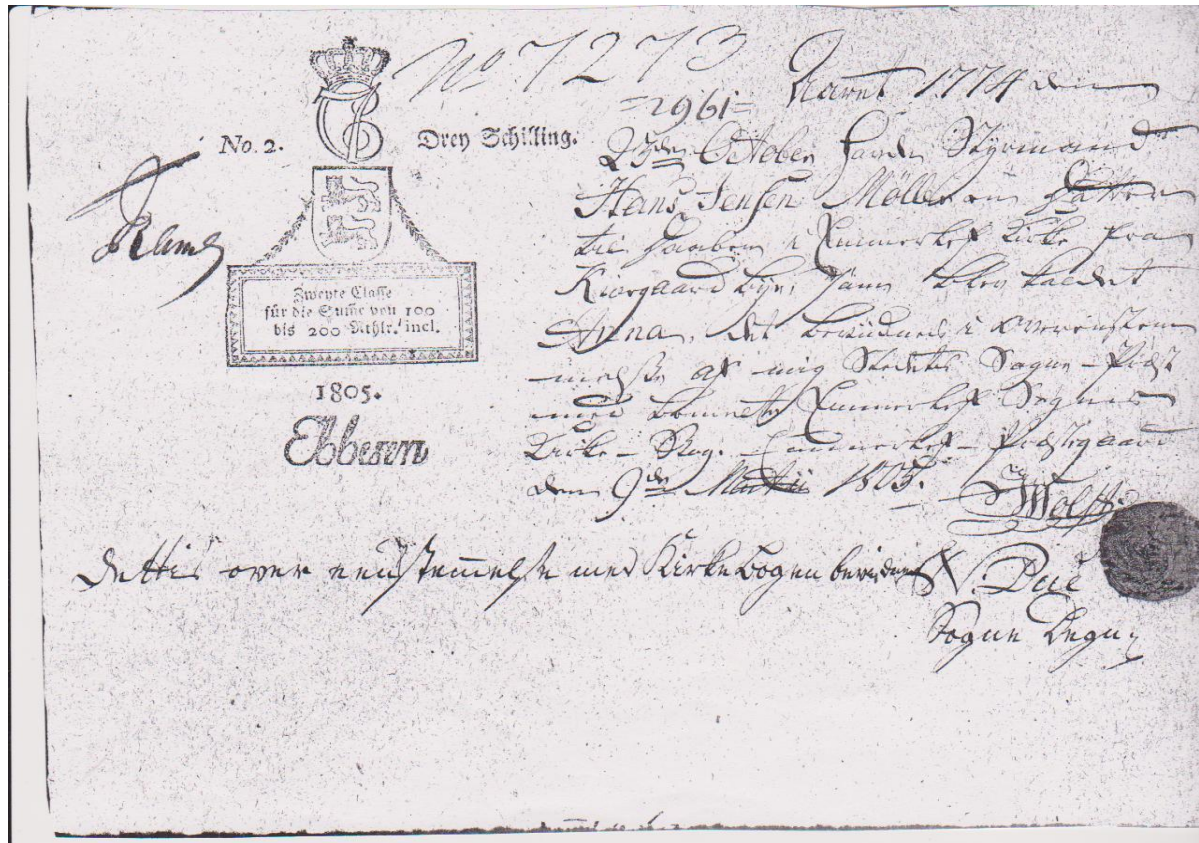 No 7273
=2961=
No. 2.
Drey Schilling.
Zweyte Classe
für die Sume von 100
bis 200 Rthlr. incl.
1805.
Ebbesen
Aaret 1774 den
23de October havde Styrmand
Hans Jensen Möller en Datter
til Daaben i Emmerlef Kirke fra
Kiergaard Bÿe, som blev kaldet
Anna, det bevidnes i Overenstem
melse af mig Stedets Sogne-Præst
med bemeldte Emmerlef Sognes
Kirke-Bog. Emmerlef-Præstegaard
den 9de Martii 1805.
Wolff
Dettis over eenstemmelse med Kirkebogen bevidner
N. Due
Sogne Degn